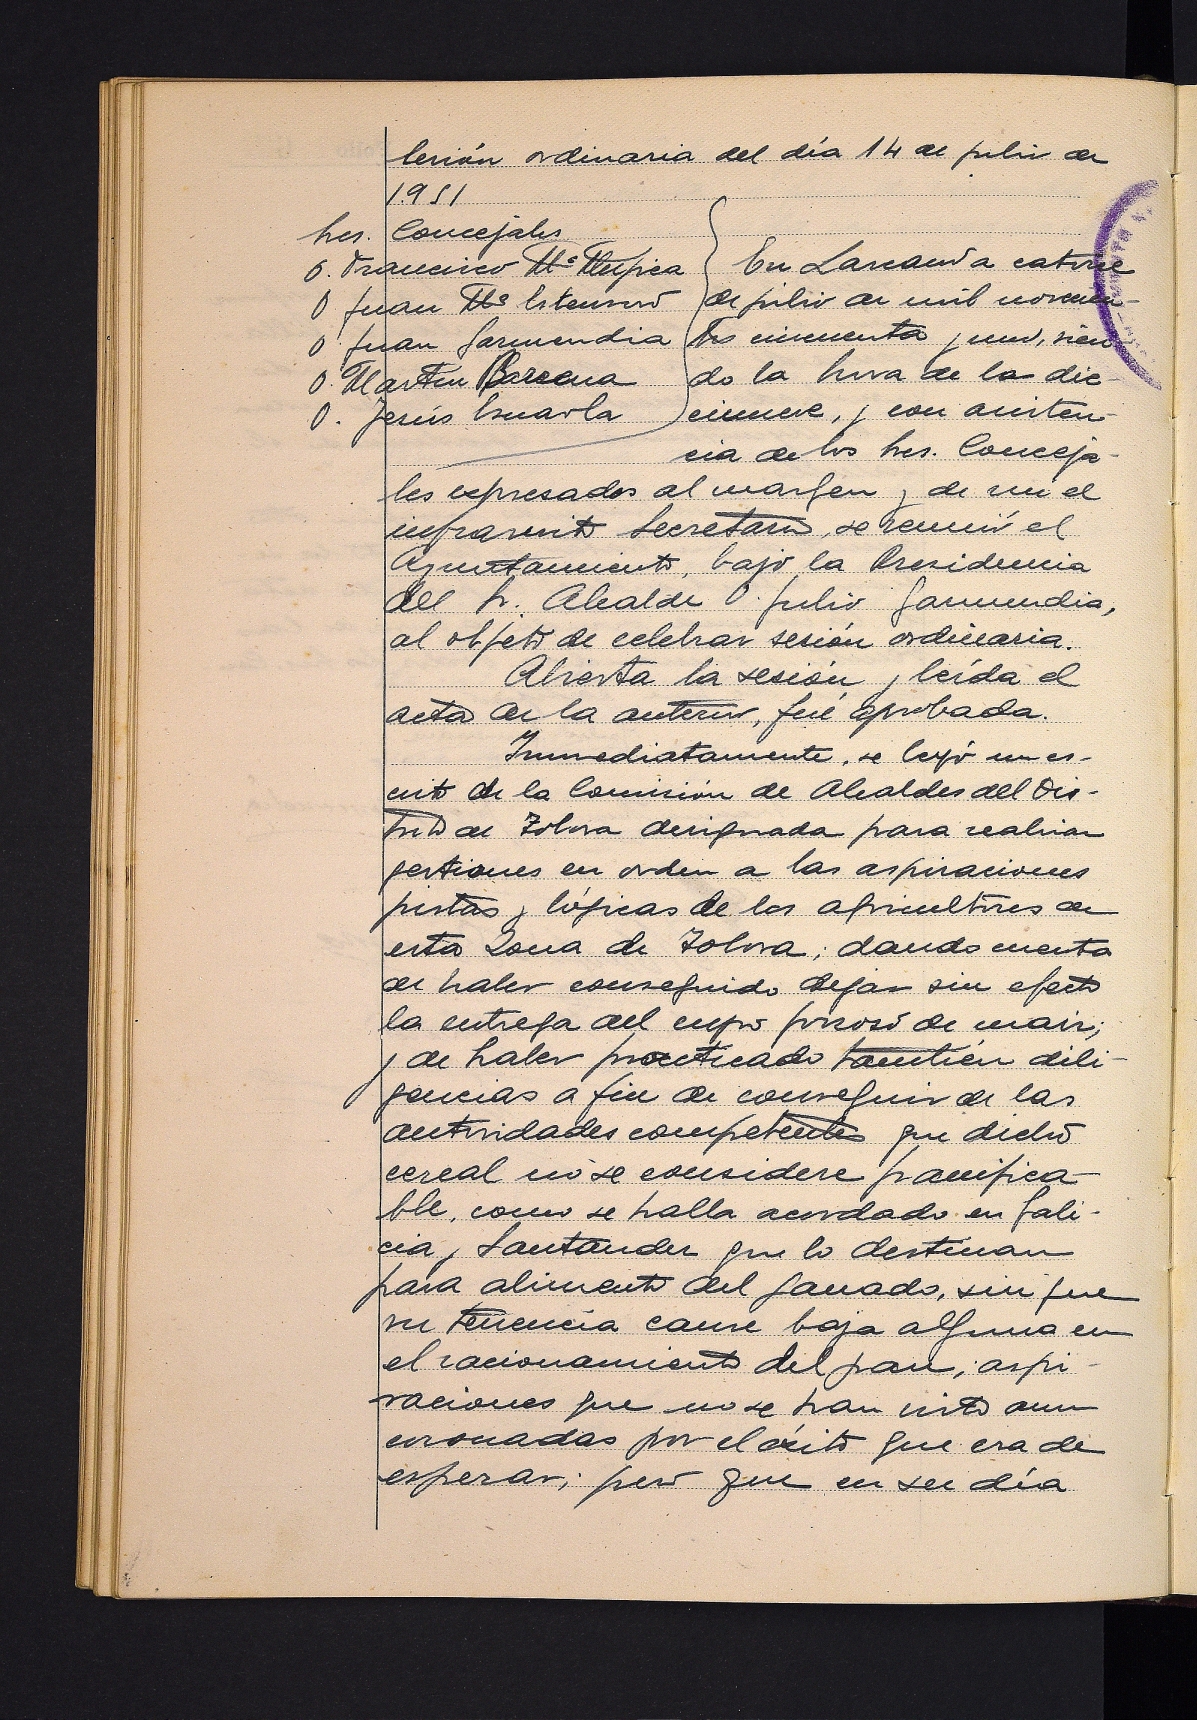 Sesión ordinaria del día 14 de julio de
1951
Sres. Concejales
D. Francisco Mª Mujica
D Juan Mª Estensoro
D Juan Garmendia
D. Martin Barcena
D. Jesús Esnaola
En Lazcano a catorce
de julio de mil novecien-
tos cincuenta y uno, sien-
do la hora de la die-
cinueve, y con asisten-
cia de los Sres. Conceja-
les expresados al margen y de mi el
infrascrito Secretario, se reunió el
Ayuntamiento, bajo la Presidencia
del Sr. Alcalde D. Julio Garmendia,
al objeto de celebrar sesión ordinaria.
Abierta la sesión y leída el
acta de la anterior, fué aprobada.
Inmediatamente, se leyó un es-
crito de la Comisión de Alcaldes del Dis-
trito de Tolosa designada para realizar
gestiones en orden a las aspiraciones
justas y lógicas de los agricultores de
esta Zona de Tolosa; dando cuenta
de haber conseguido dejar sin efecto
la entrega del cupo forzoso de maiz;
y de haber practicado también dili-
gencias a fin de conseguir de las
autoridades competentes que dicho
cereal no se considere panifica-
ble, como se halla acordado en Gali-
cia y Santander que lo destinan
para alimento del ganado, sin que
su tenencia cause baja alguna en
el racionamiento del pan; aspi-
raciones que no se han visto aun
coronadas por el éxito que era de
esperar; pero que en su día